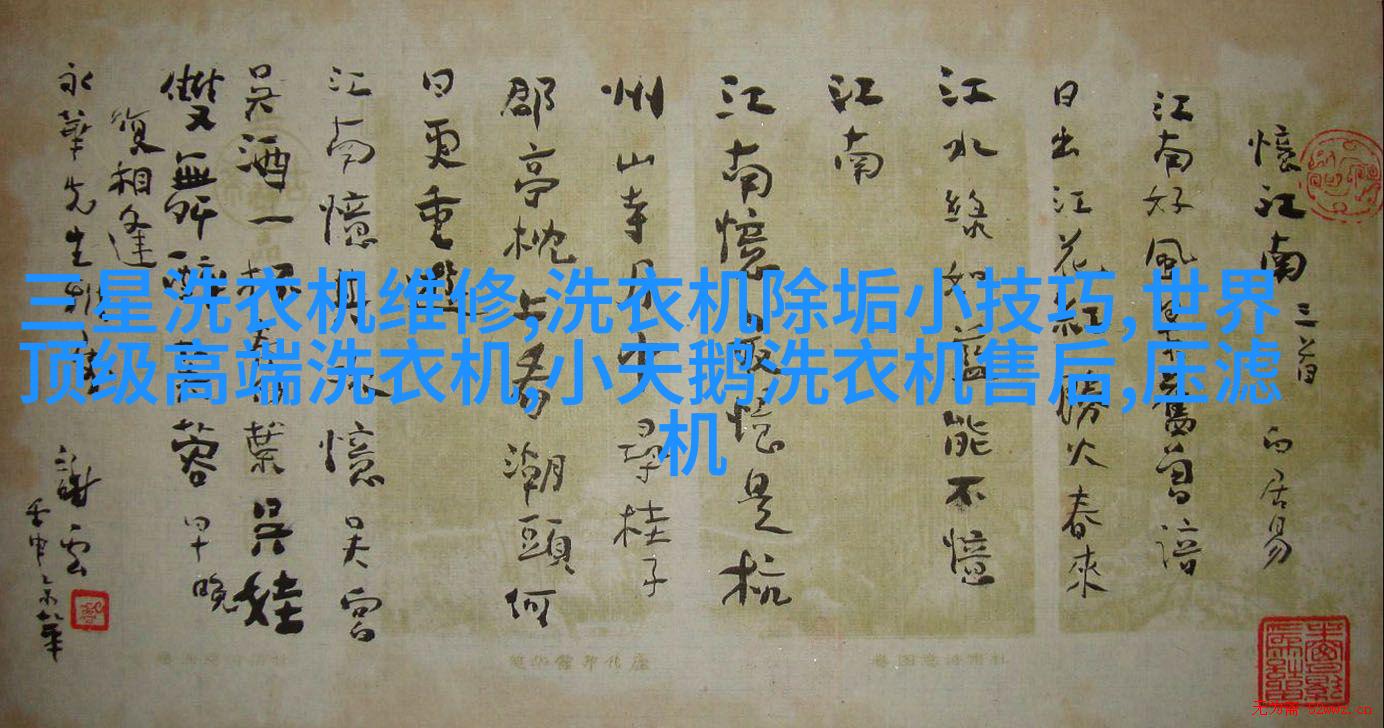 三星洗衣机维修,洗衣机除垢小技巧,世界
顶级高端洗衣机,小天鹅洗衣机售后,压滤
机
憶江南 三首 白居易
江南好風景舊曾諳
日出江花紅勝火春來
江水綠如藍能不憶
江南
江南憶最憶是杭
州山寺月中尋桂子
郡亭枕上看潮頭何
日更重遊
江南憶其次憶吳宮
吳酒一杯春竹葉吳娃
雙舞醉芙蓉早晚
復相逢
永華先生
謝雲
壬申京華
无为斋 52wwz.cn